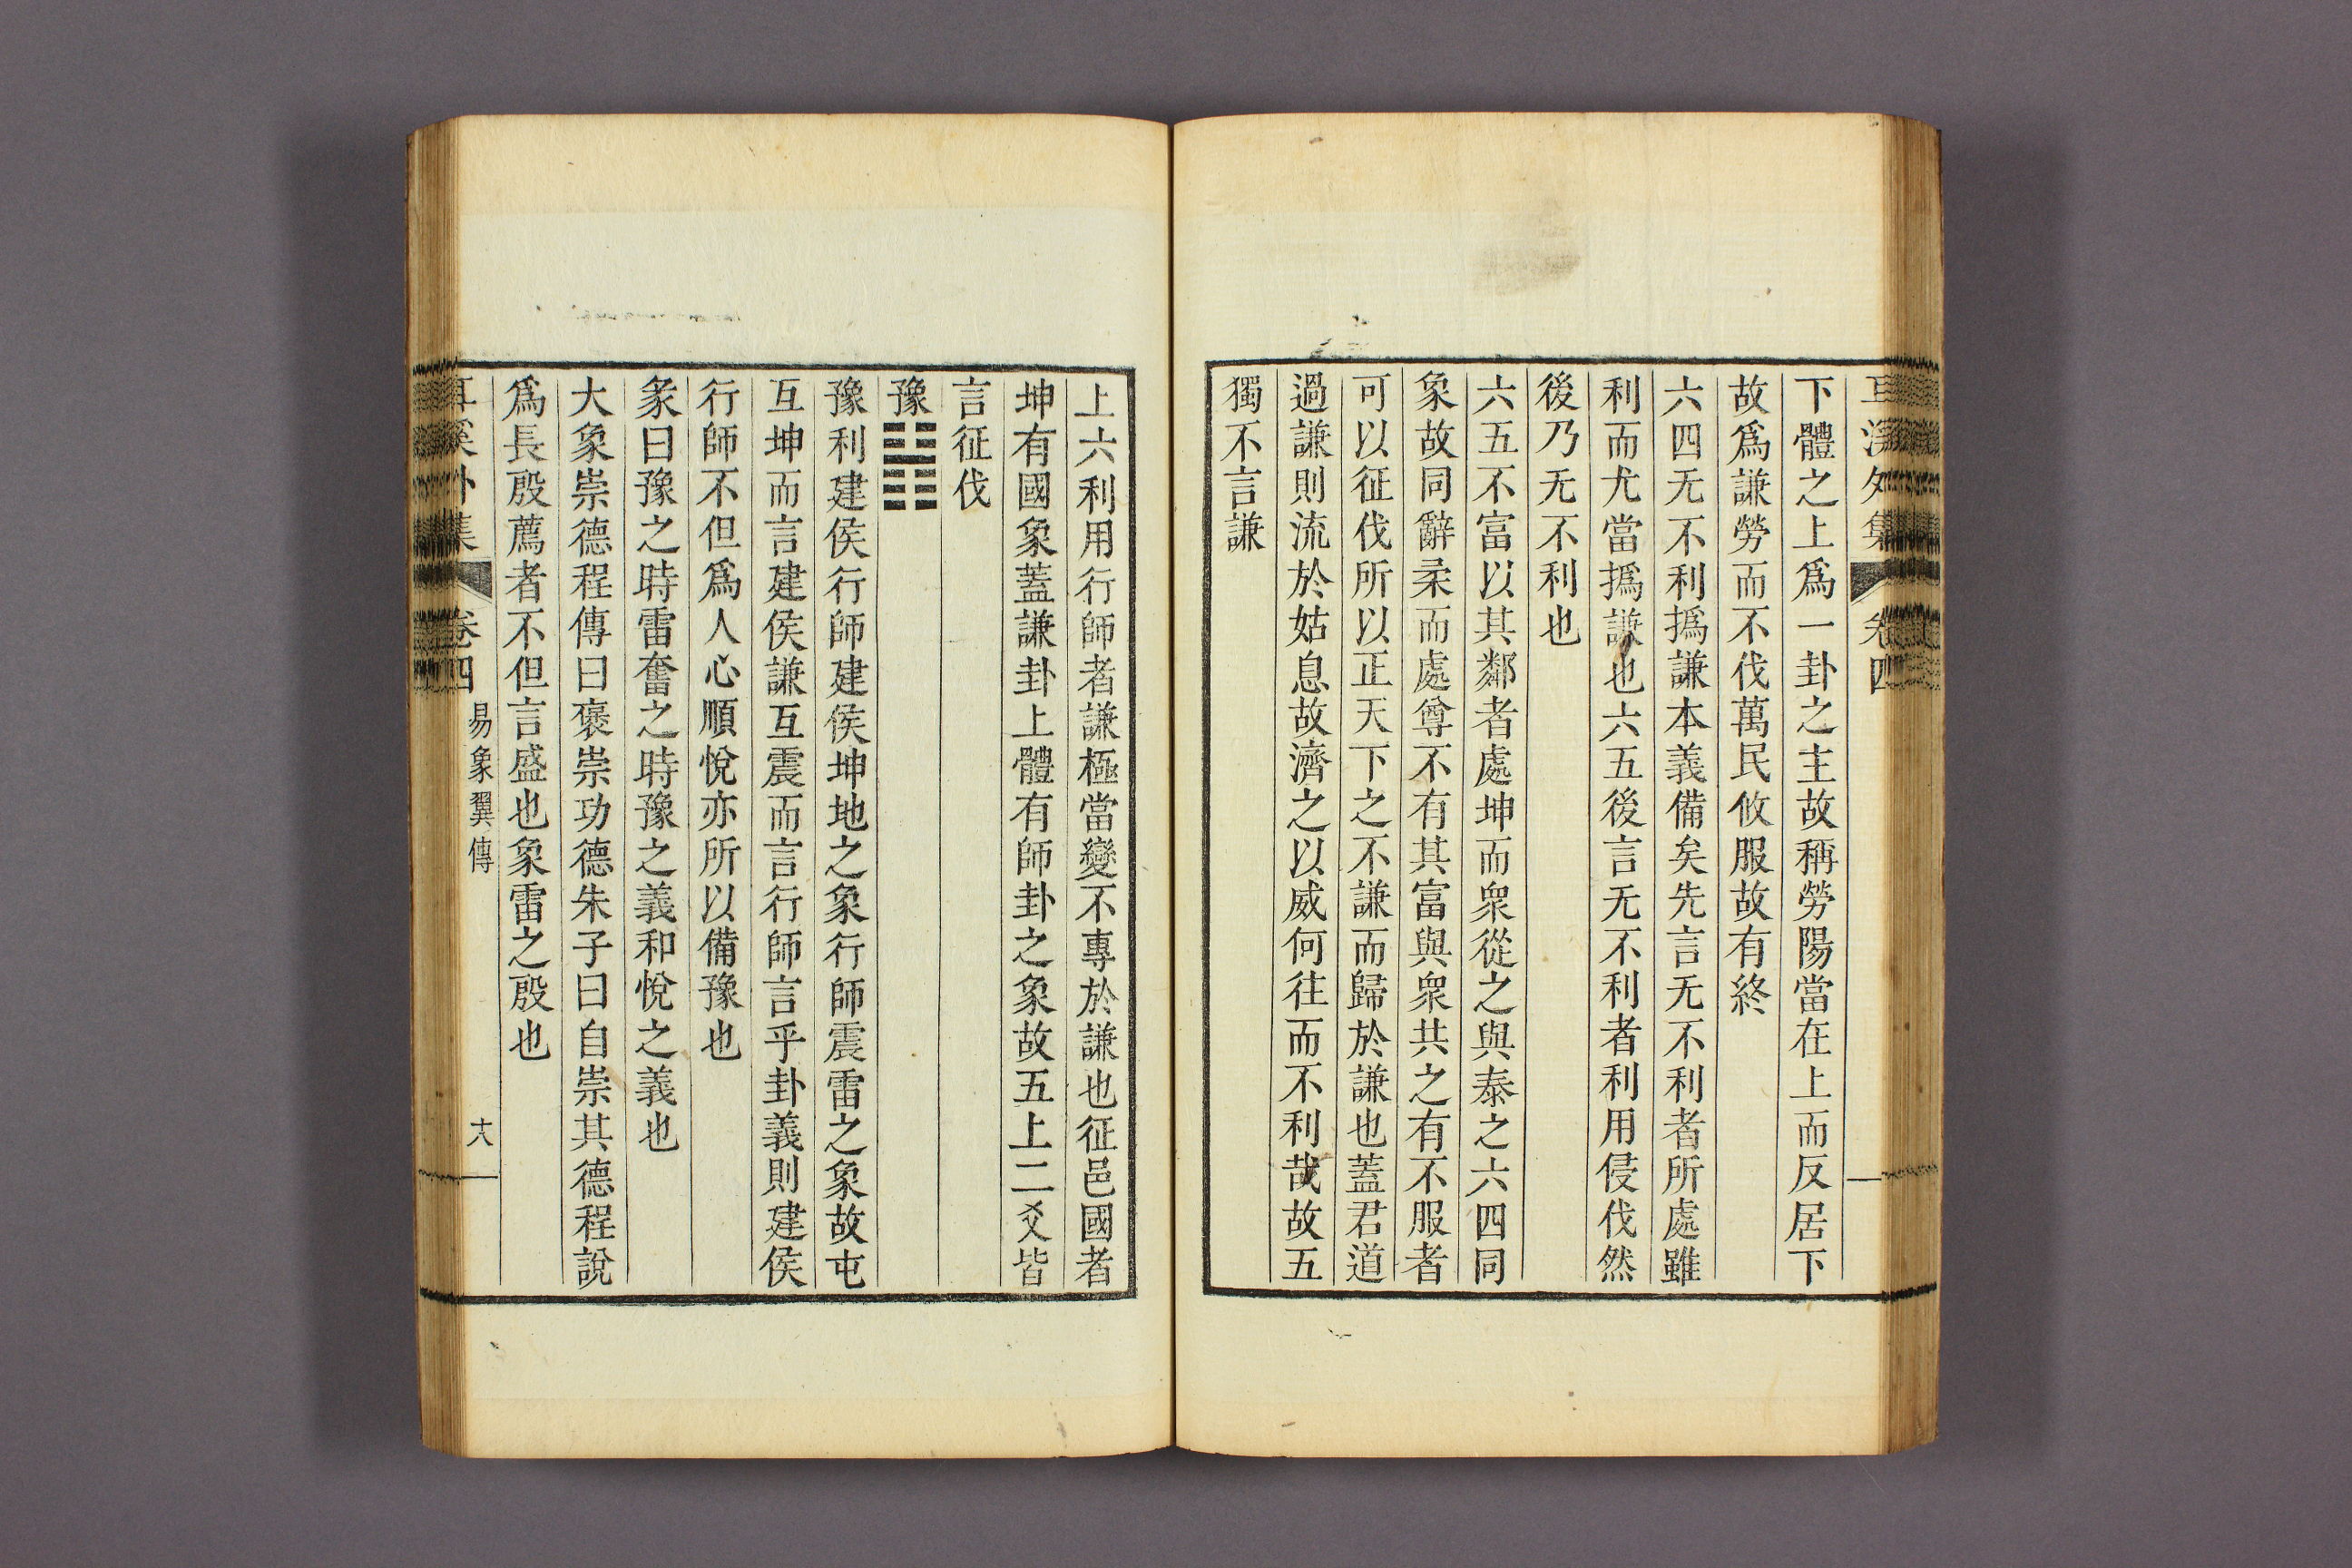 下體之上爲一卦之主故稱勞陽當在上而反居下
故爲謙勞而不伐萬民攸服故有終
六四无不利撝謙本義備矣先言无不利者所處雖
利而尤當撝謙也六五後言无不利者利用侵伐然
後乃无不利也
六五不富以其鄰者處坤而衆從之與泰之六四同
象故同辭柔而處尊不有其富與衆共之有不服者
可以征伐所以正天下之不謙而歸於謙也蓋君道
過謙則流於姑息故濟之以威何往而不利哉故五
獨不言謙
上六利用行師者謙極當變不專於謙也征邑國者
坤有國象蓋謙卦上體有師卦之象故五上二爻皆
言征伐
豫䷏
豫利建侯行師建侯坤地之象行師震雷之象故屯
互坤而言建侯謙互震而言行師言乎卦義則建侯
行師不但爲人心順悅亦所以備豫也
彖曰豫之時雷奮之時豫之義和悅之義也
大象崇德程傳曰褒崇功德朱子曰自崇其德程說
爲長殷薦者不但言盛也象雷之殷也
耳溪外集 卷四 易象翼傳 十八